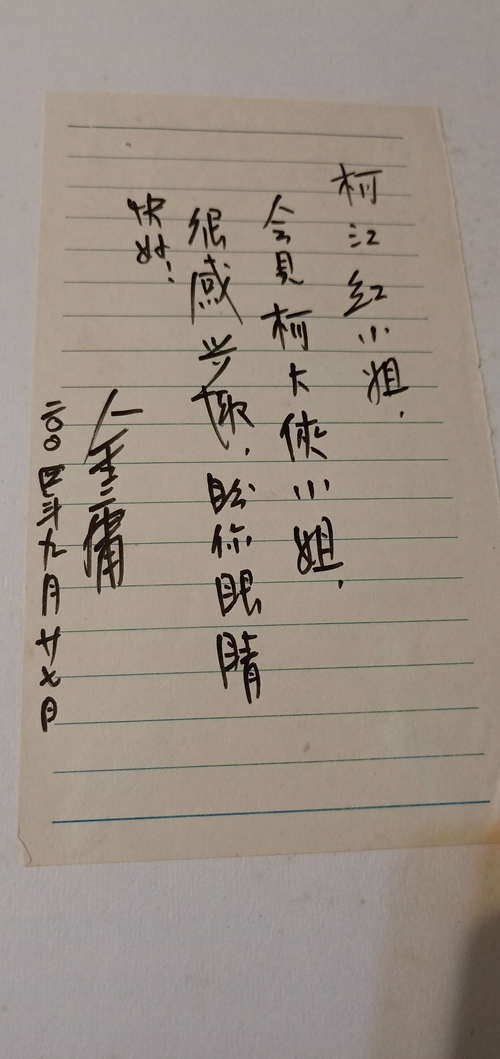 柯江红小姐，
会見柯大俠小姐，
很感兴趣，盼你眼睛
快好！
金庸
二〇〇四年九月廿七日